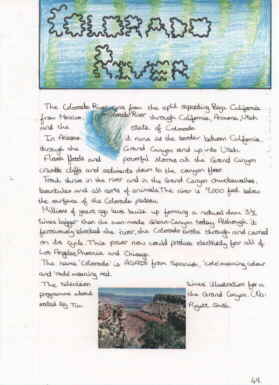 COLORADO
RIVER
The Colorado River runs from the split separating Baja California
from Mexico. Colorado River through California, Arizona, Utah
and the state of Colorado
In Arizona it runs at the border between California
through the Grand Canyon and up into Utah.
Flash floods and powerful storms at the Grand Canyon
cliffs and sediments down to the canyon floor
Trout thrive in the river and in the Grand Canyon
and all sorts of animals. The river is below
the surface of the Colorado plateau.
Millions of years ago lava built up forming a natural dam
times bigger than the man-made Glen Canyon today. Although it
ferociously blocked the river, the Colorado broke through and carried
on its cycle. This power now could produce electricity for all of
Los Angeles, Phoenix and Chicago.
The name 'Colorado' is from Spanish, 'color' meaning colour
and 'rado' meaning red.
The television times illustration for a
programme about the Grand Canyon.